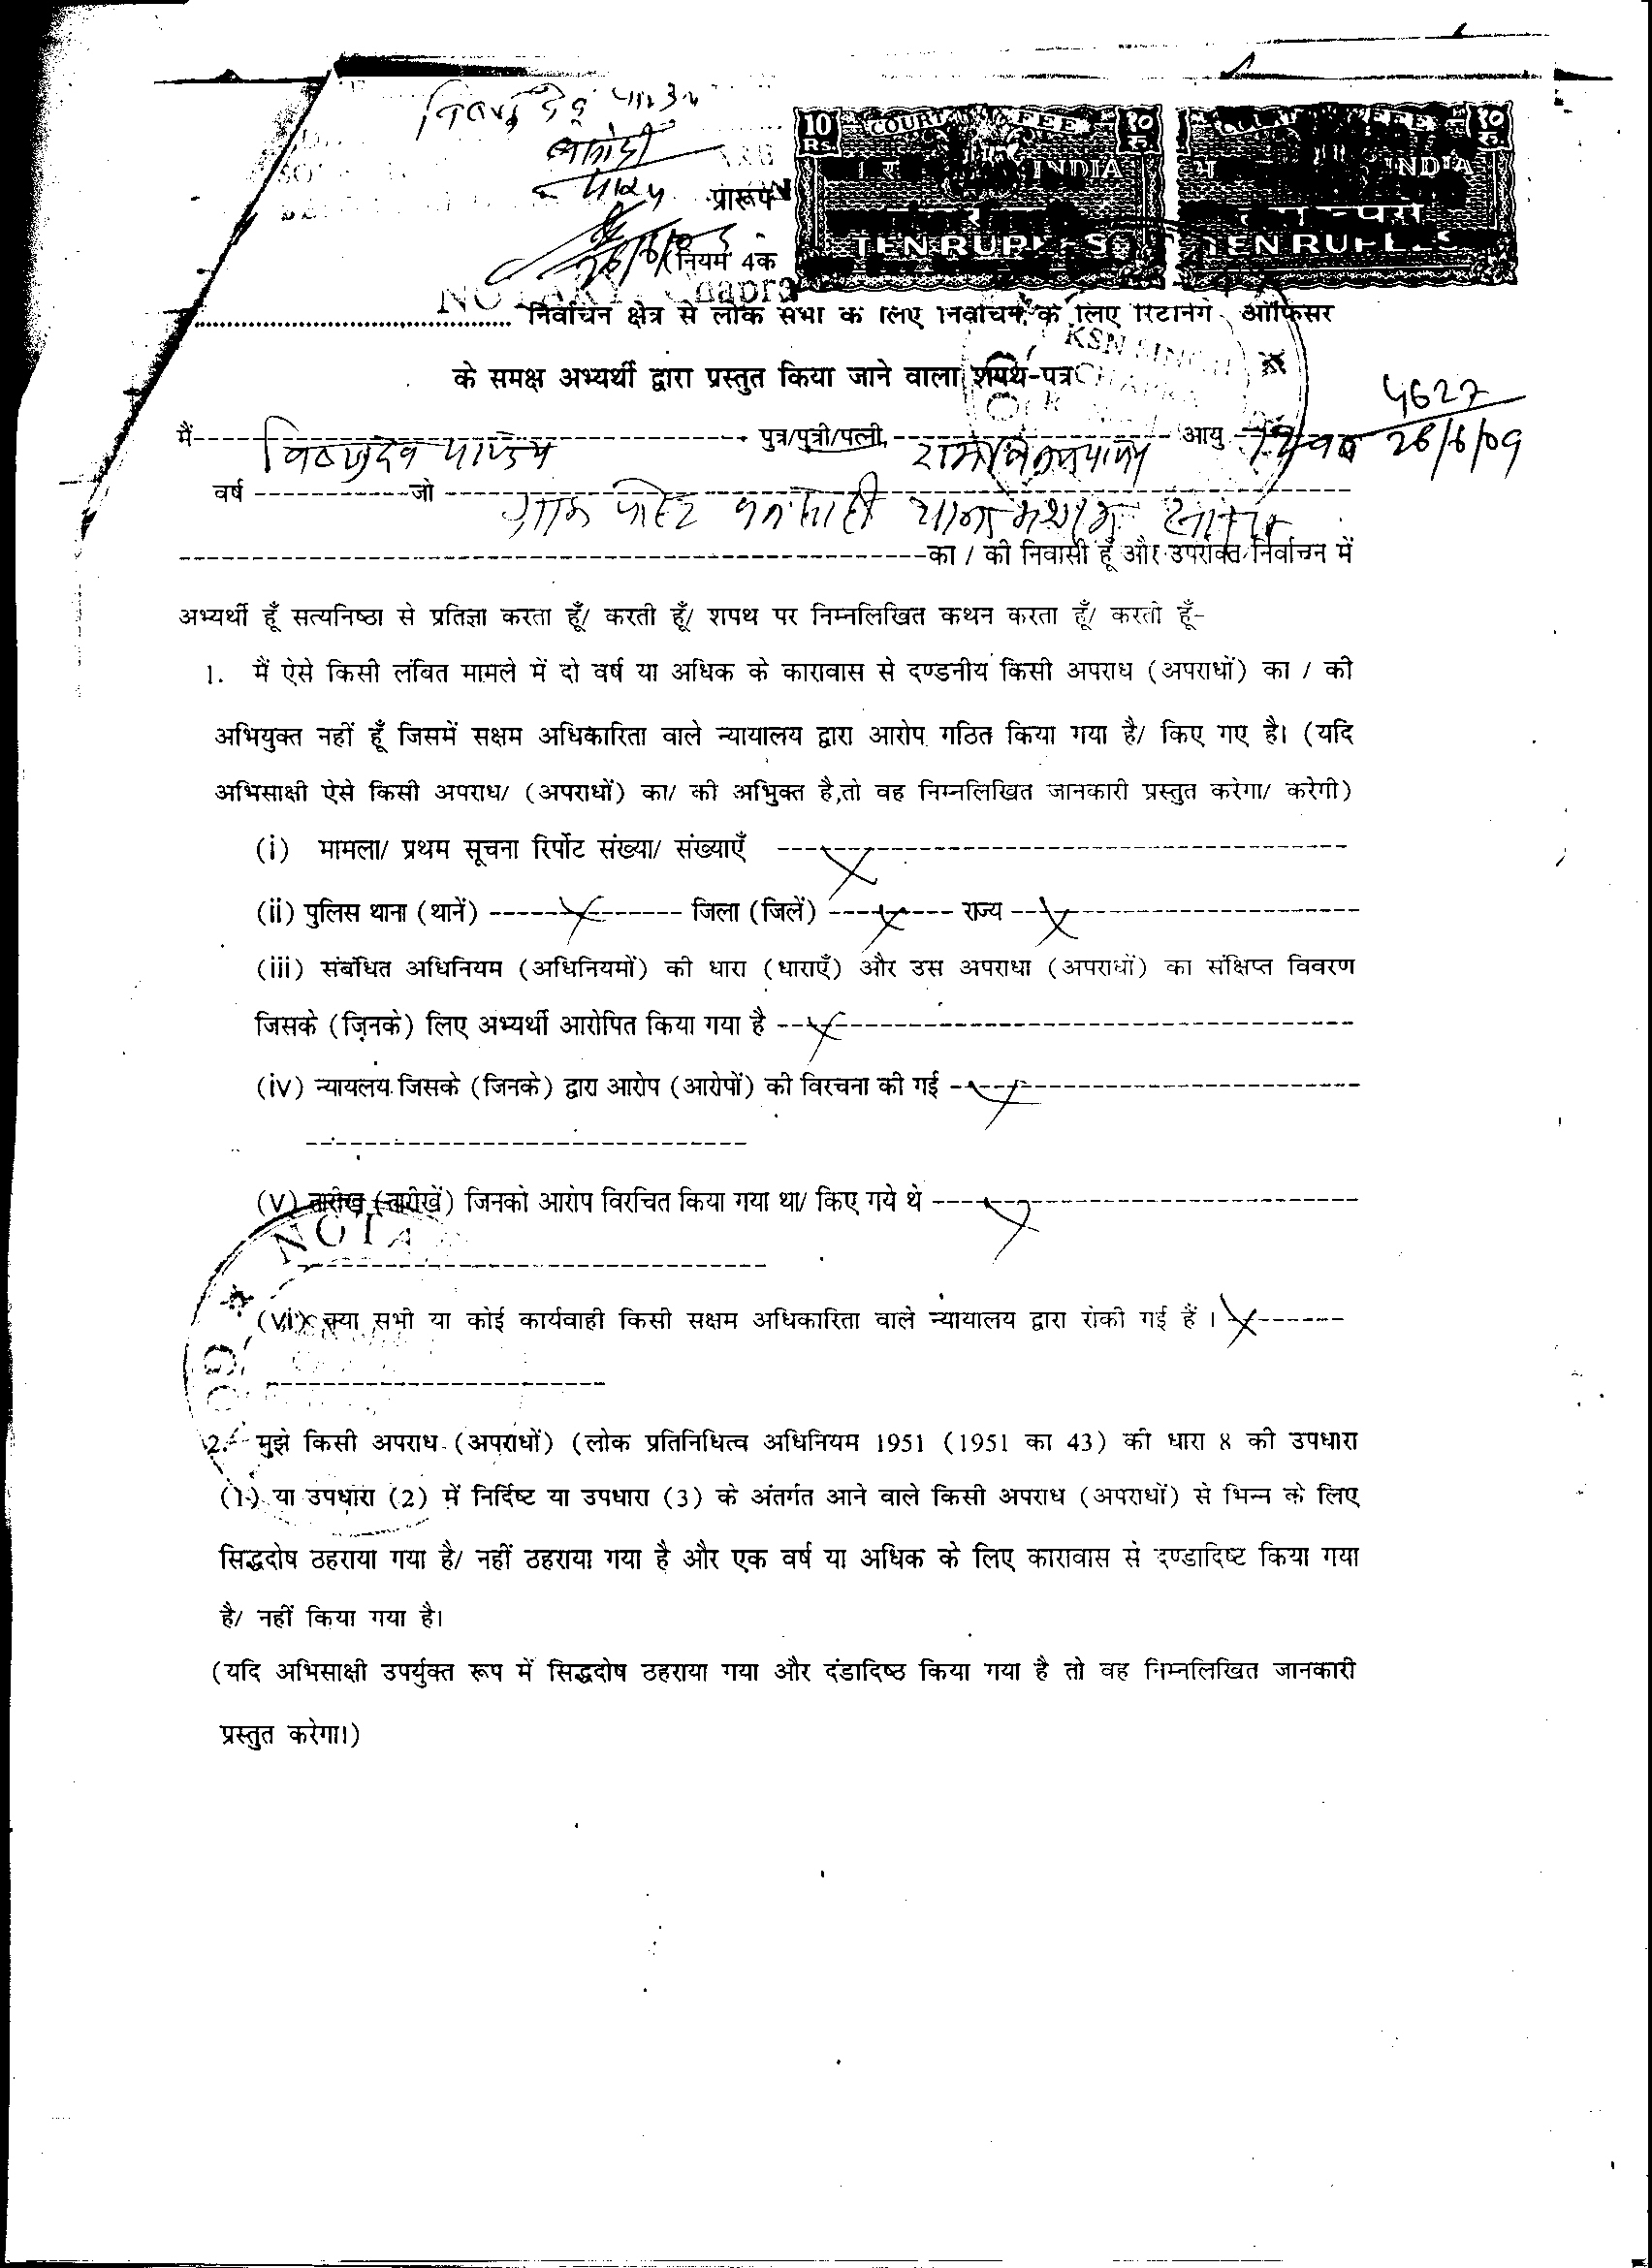 10 Rs. COURT FEE १० रु. FEE १० रु.
INDIA INDIA
पाण्डेय प्रारूप
TEN RUPEES TEN RUPEES
(नियम 4क
NOTARY Chapra
निर्वाचन क्षेत्र से लोक सभा के लिए निर्वाचन के लिए रिटर्निंग ऑफिसर
KSN SINGH
के समक्ष अभ्यर्थी द्वारा प्रस्तुत किया जाने वाला शपथ-पत्र
CHAPRA
4627
मैं विष्णुदेव पाण्डेय पुत्र/पुत्री/पत्नी आयु 26/6/09
वर्ष जो पोस्ट
का / की निवासी हूँ और उपरोक्त निर्वाचन में
अभ्यर्थी हूँ सत्यनिष्ठा से प्रतिज्ञा करता हूँ/ करती हूँ/ शपथ पर निम्नलिखित कथन करता हूँ/ करती हूँ-
1. मैं ऐसे किसी लंवित मामले में दो वर्ष या अधिक के कारावास से दण्डनीय किसी अपराध (अपराधों) का / की
अभियुक्त नहीं हूँ जिसमें सक्षम अधिकारिता वाले न्यायालय द्वारा आरोप गठित किया गया है/ किए गए है। (यदि
अभिसाक्षी ऐसे किसी अपराध/ (अपराधों) का/ की अभिुक्त है,तो वह निम्नलिखित जानकारी प्रस्तुत करेगा/ करेगी)
(i) मामला/ प्रथम सूचना रिर्पोट संख्या/ संख्याएँ X
(ii) पुलिस थाना (थानें) X जिला (जिलें) X राज्य X
(iii) संबंधित अधिनियम (अधिनियमों) की धारा (धाराएँ) और उस अपराधा (अपराधों) का संक्षिप्त विवरण
जिसके (जिनके) लिए अभ्यर्थी आरोपित किया गया है X
(iv) न्यायलय जिसके (जिनके) द्वारा आरोप (आरोपों) की विरचना की गई X
(v) तारीख (तारीखें) जिनको आरोप विरचित किया गया था/ किए गये थे X
NOTA
(vi) क्या सभी या कोई कार्यवाही किसी सक्षम अधिकारिता वाले न्यायालय द्वारा रोकी गई हैं । X
2. मुझे किसी अपराध (अपराधों) (लोक प्रतिनिधित्व अधिनियम 1951 (1951 का 43) की धारा 8 की उपधारा
(1) या उपधारा (2) में निर्दिष्ट या उपधारा (3) के अंतर्गत आने वाले किसी अपराध (अपराधों) से भिन्न के लिए
सिद्धदोष ठहराया गया है/ नहीं ठहराया गया है और एक वर्ष या अधिक के लिए कारावास से दण्डादिष्ट किया गया
है/ नहीं किया गया है।
(यदि अभिसाक्षी उपर्युक्त रूप में सिद्धदोष ठहराया गया और दंडादिष्ठ किया गया है तो वह निम्नलिखित जानकारी
प्रस्तुत करेगा।)